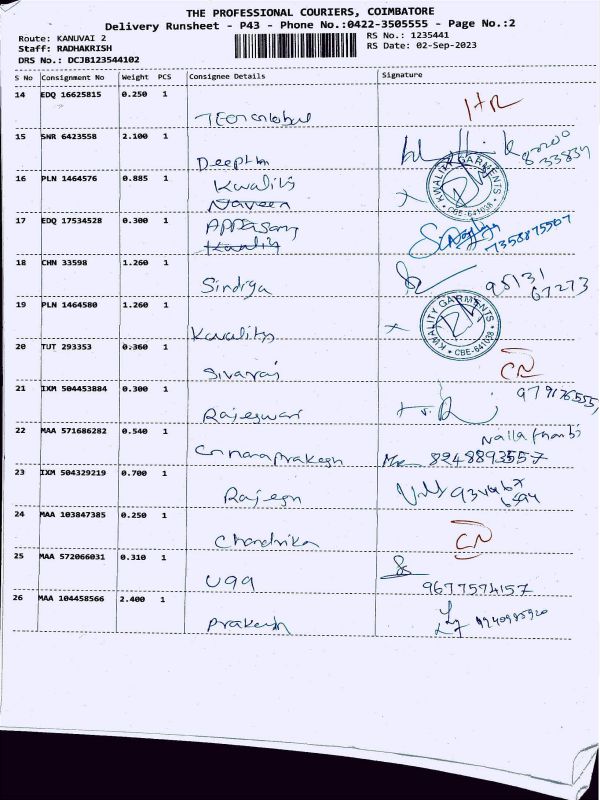 THE PROFESSIONAL COURIERS, COIMBATORE
Delivery Runsheet - P43 - Phone No.:0422-3505555 - Page No.:2
Route: KANUVAI 2
RS No.: 1235441
Staff: RADHAKRISH
RS Date: 02-Sep-2023
DRS No.: DCJB123544102
S No Consignment No Weight PCS Consignee Details Signature
14 EDQ 16625815 0.250 1
15 SNR 6423558 2.100 1
Deepthi
KWALITY GARMENTS * CBE-641038 *
16 PLN 1464576 0.885 1 Kwality
Naveen
17 EDQ 17534528 0.300 1 APPasamy
Kwality
7358875507
18 CHN 33598 1.260 1
Sindiya
95131
67273
19 PLN 1464580 1.260 1
Kwality
KWALITY GARMENTS * CBE-641038 *
20 TUT 293353 0.360 1
Sivaraj
CN
21 IXM 504453884 0.300 1
Rajeswari
22 MAA 571686282 0.540 1
8248893557
23 IXM 504329219 0.700 1
Rajesh
24 MAA 103847385 0.250 1
Chandrika
CN
25 MAA 572066031 0.310 1
9677574157
26 MAA 104458566 2.400 1
Prakash